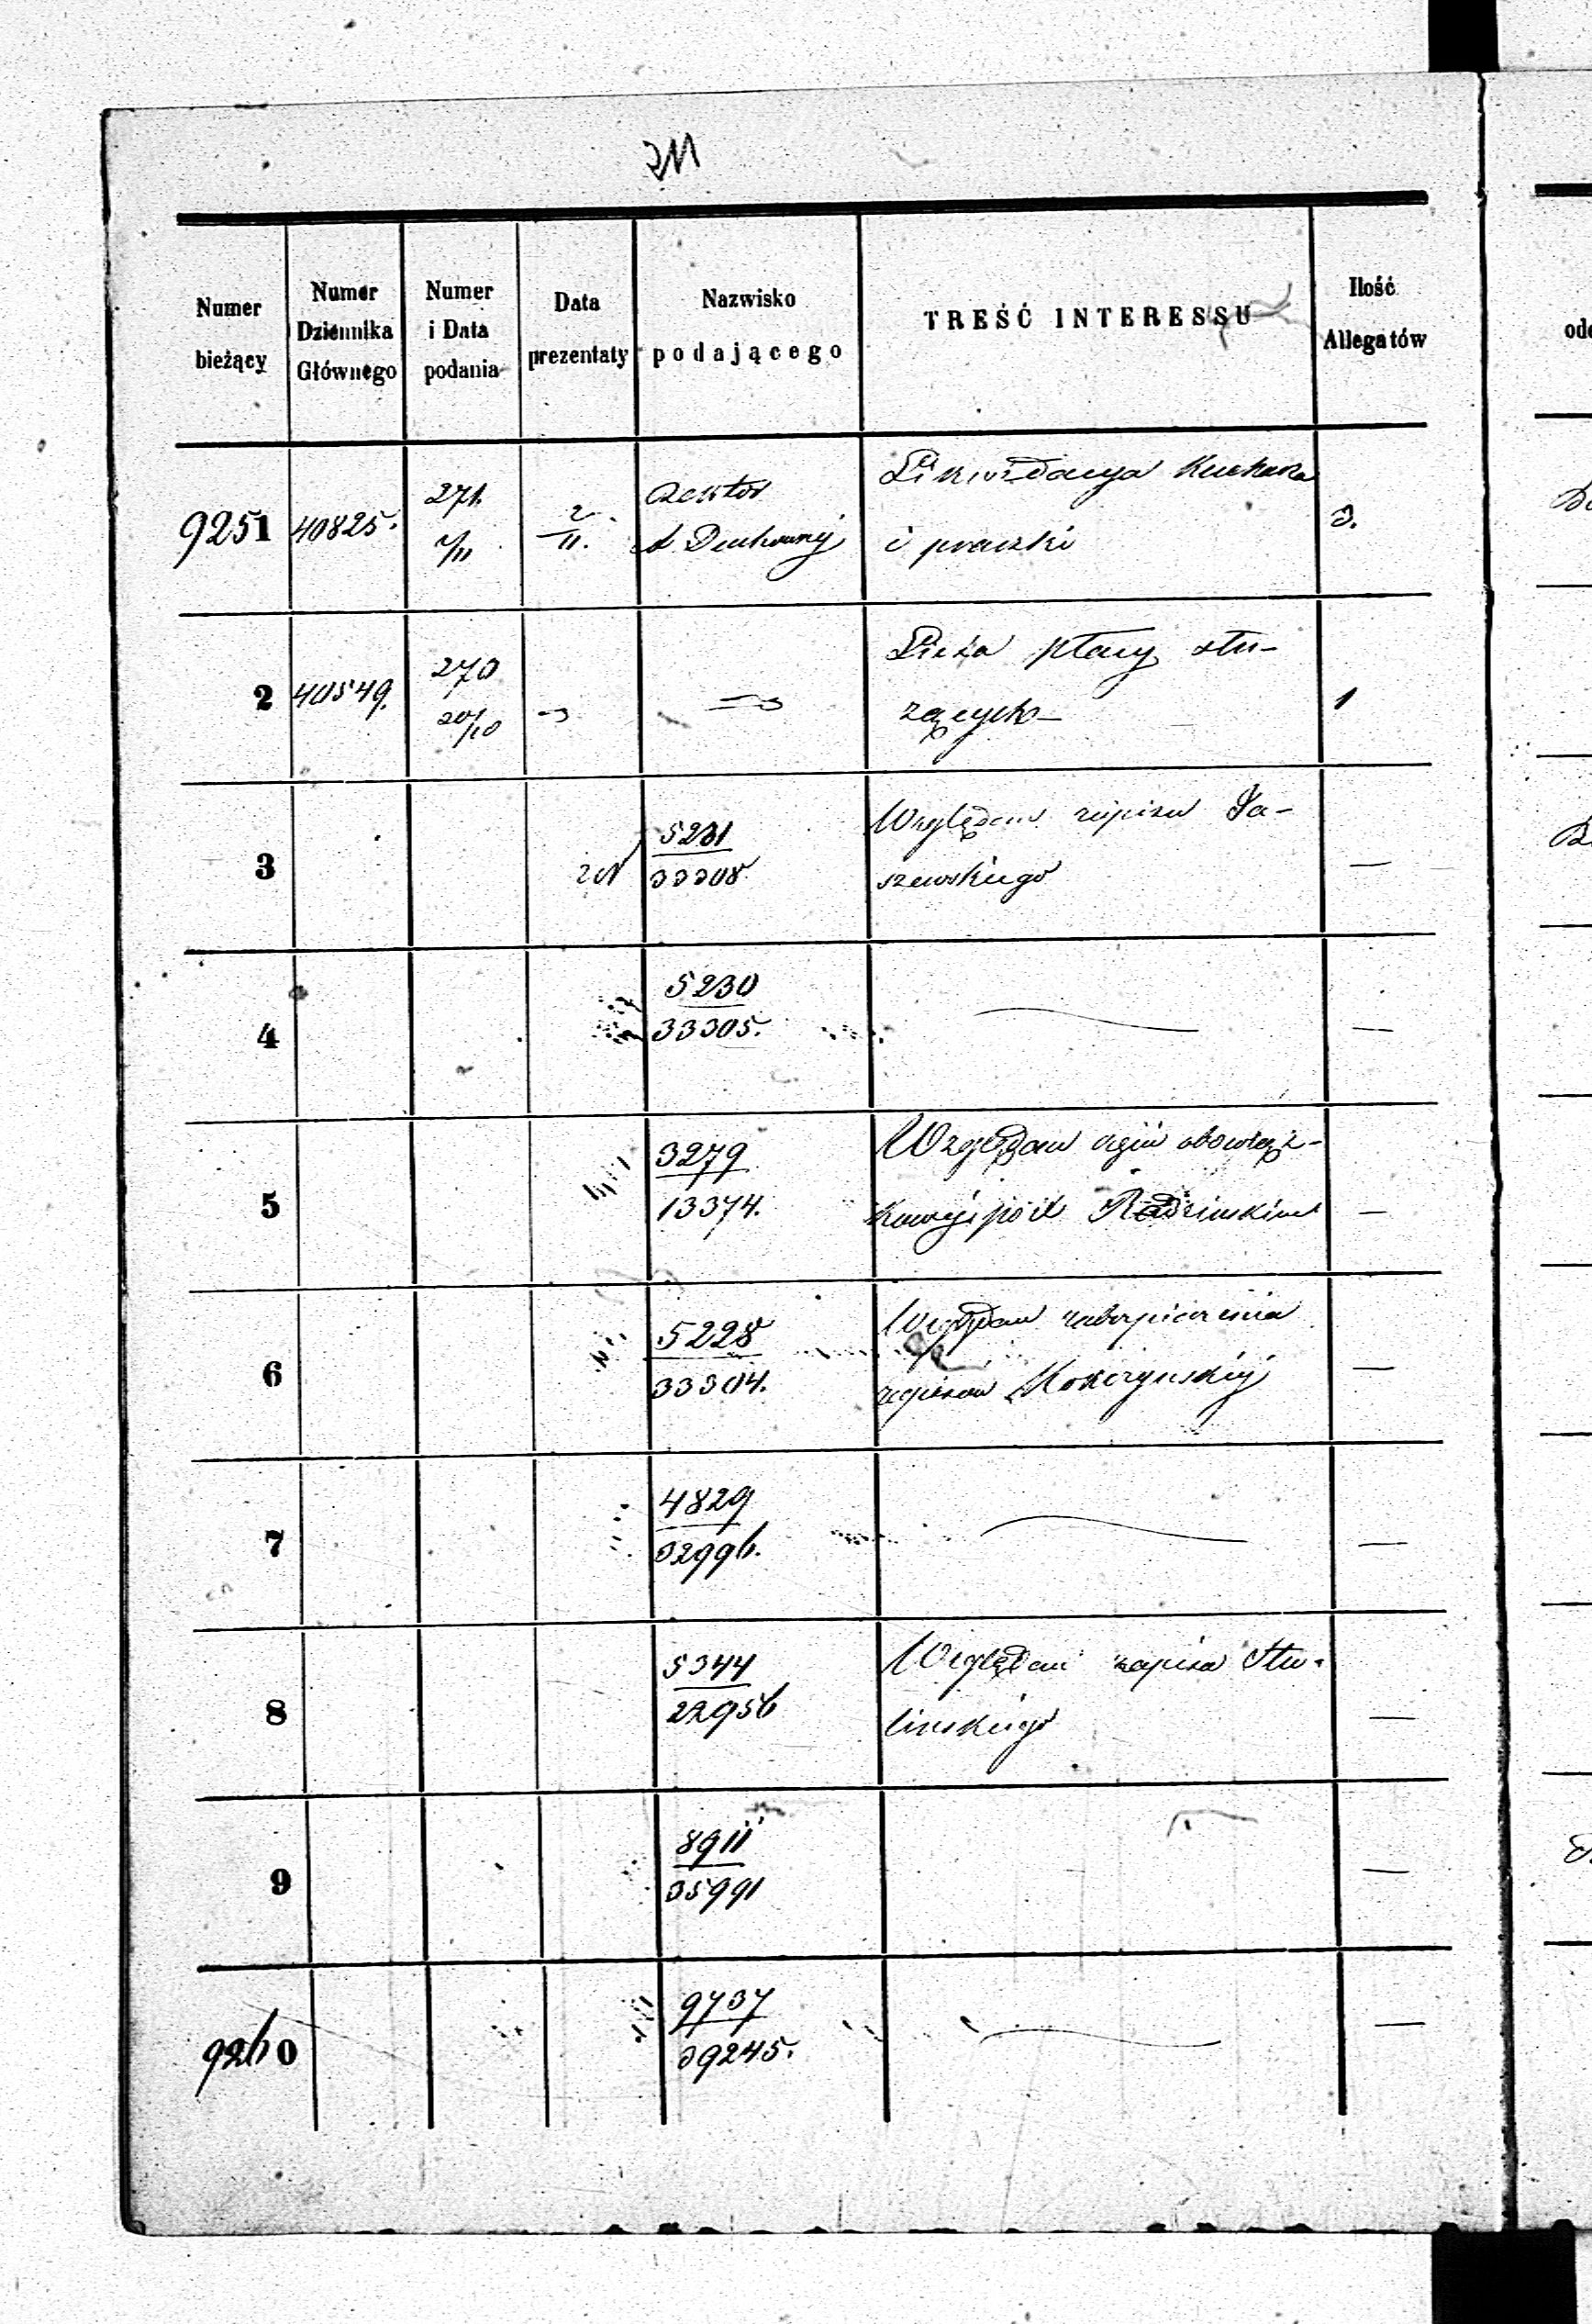 Numer bieżący
Numer Dziennika Głównego
Numer i Data podania
Data prezentaty
Nazwisko podającego
TREŚĆ INTERESSU
Ilość Allegatów
9251 40825. 271. 2/11 2/11. Rektor A. Duchownej Likwidacya Kucharza 3.
i praczki
2 40549. 270 20/10 Lista płacy słu- 1
żących
3 5231 Względem zapisu Ja- —
33308 szewskiego
4 5230 —
33305.
5 3279 Względem
13374. pod Radzimskim —
6 5228 Względem zabezpieczenia —
33304. zapisów Mokrzyńskiej
7 4829 —
32996.
8 5344 Względem zapisu Stu- —
22956 lińskiego
9 8911 —
35991
9260 9737 —
39245.